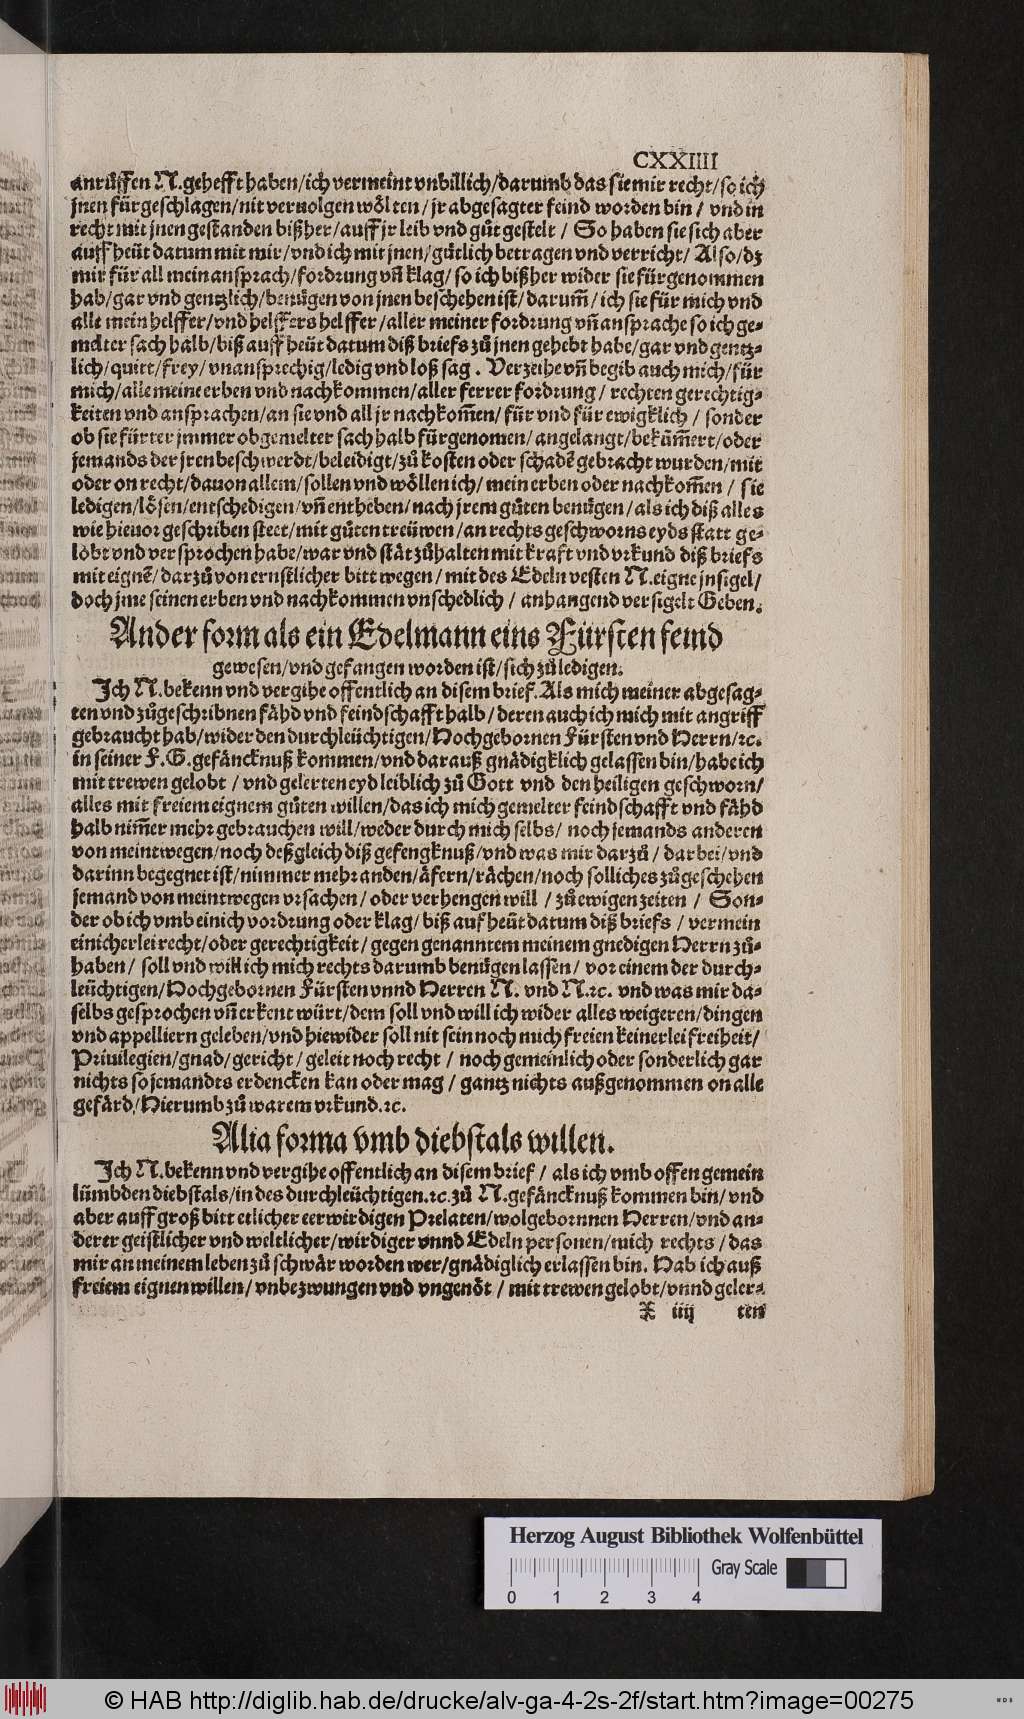 CXXIIII
anrůffen N. gehefft haben/ich vermeint vnbillich/darumb das sie mir recht/so ich
jnen fürgeschlagen/nit veruolgen wölten/jr abgesagter feind worden bin/vnd in
recht mit jnen gestanden bißher/auff jr leib vnd gůt gestelt/So haben sie sich aber
auff heüt datum mit mir/vnd ich mit jnen/gůtlich betragen vnd verricht/Also/dz
mir für all mein ansprach/fordrung vñ klag/so ich bißher wider sie fürgenommen
hab/gar vnd gentzlich/benügen von jnen beschehen ist/darum̃/ich sie für mich vnd
alle mein helffer/vnd helffers helffer/aller meiner fordrung vñ ansprache so ich ge⸗
melter sach halb/biß auff heüt datum diß briefs zů jnen gehebt habe/gar vnd gentz⸗
lich/quitt/frey/vnansprechig/ledig vnd loß sag. Verzeihe vñ begib auch mich/für
mich/alle meine erben vnd nachkommen/aller ferrer fordrung/rechten gerechtig⸗
keiten vnd ansprachen/an sie vnd all jr nachkom̃en/für vnd für ewigklich/sonder
ob sie fürter jmmer obgemelter sach halb fürgenomen/angelangt/bekům̃ert/oder
jemands der jren beschwerdt/beleidigt/zů kosten oder schadẽ gebracht wurden/mit
oder on recht/dauon allem/sollen vnd wöllen ich/mein erben oder nachkom̃en/sie
ledigen/lösen/entschedigen/vñ entheben/nach jrem gůten benügen/als ich diß alles
wie hieuor geschriben steet/mit gůten treüwen/an rechts geschworns eyds statt ge⸗
löbt vnd versprochen habe/war vnd stät zůhalten mit kraft vnd vrkund diß briefs
mit eignẽ/darzů von ernstlicher bitt wegen/mit des Edeln vesten N. eigne jnsigel/
doch jme seinen erben vnd nachkommen vnschedlich/anhangend versigelt Geben.
Ander form als ein Edelmann eins Fürsten feind
gewesen/vnd gefangen worden ist/sich zů ledigen.
Ich N. bekenn vnd vergihe offentlich an disem brief. Als mich meiner abgesag⸗
ten vnd zůgeschribnen fähd vnd feindschafft halb/deren auch ich mich mit angriff
gebraucht hab/wider den durchleüchtigen/Hochgebornen Fürsten vnd Herrn/⁊c.
in seiner F. G. gefäncknuß kommen/vnd darauß gnädigklich gelassen bin/habe ich
mit trewen gelobt/vnd gelerten eyd leiblich zů Gott vnd den heiligen geschworn/
alles mit freiem eignem gůten willen/das ich mich gemelter feindschafft vnd fähd
halb nim̃er mehr gebrauchen will/weder durch mich selbs/noch jemands anderen
von meint wegen/noch deßgleich diß gefengknuß/vnd was mir darzů/darbei/vnd
darinn begegnet ist/nimmer mehr anden/äfern/rächen/noch solliches zůgeschehen
jemand von meint wegen vrsachen/oder verhengen will/zů ewigen zeiten/Son⸗
der ob ich vmb einich vordrung oder klag/biß auf heüt datum diß briefs/vermein
einicherlei recht/oder gerechtigkeit/gegen genanntem meinem gnedigen Herrn zů⸗
haben/soll vnd will ich mich rechts darumb benügen lassen/vor einem der durch⸗
leüchtigen/Hochgebornen Fürsten vnnd Herren N. vnd N. ⁊c. vnd was mir da⸗
selbs gesprochen vñ erkent würt/dem soll vnd will ich wider alles weigeren/dingen
vnd appelliern geleben/vnd hiewider soll nit sein noch mich freien keinerlei freiheit/
Priuilegien/gnad/gericht/geleit noch recht/noch gemeinlich oder sonderlich gar
nichts so jemandts erdencken kan oder mag/gantz nichts außgenommen on alle
gefärd/Hierumb zů warem vrkund. ⁊c.
Alia forma vmb diebstals willen.
Ich N. bekenn vnd vergihe offentlich an disem brief/als ich vmb offen gemein
lümbden diebstals/in des durchleüchtigen. ⁊c. zů N. gefäncknuß kommen bin/vnd
aber auff groß bitt etlicher eerwirdigen Prelaten/wolgebornnen Herren/vnd an⸗
derer geistlicher vnd weltlicher/wirdiger vnnd Edeln personen/mich rechts/das
mir an meinem leben zů schwär worden wer/gnädiglich erlassen bin. Hab ich auß
freiem eignen willen/vnbezwungen vnd vngenöt/mit trewen gelobt/vnnd geler⸗
X iiij ten
Herzog August Bibliothek Wolfenbüttel
Gray Scale
0 1 2 3 4
© HAB http://diglib.hab.de/drucke/alv-ga-4-2s-2f/start.htm?image=00275
WDB